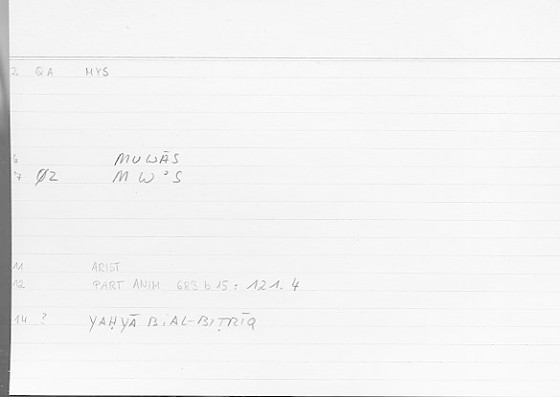 2 QA MYS
6 MUWĀS
7 Ø2 M W ʾ S
11 ARIST
12 PART ANIM 683 b 15 : 121.4
14 ? YAḤYĀ B.AL-BIṬRĪQ